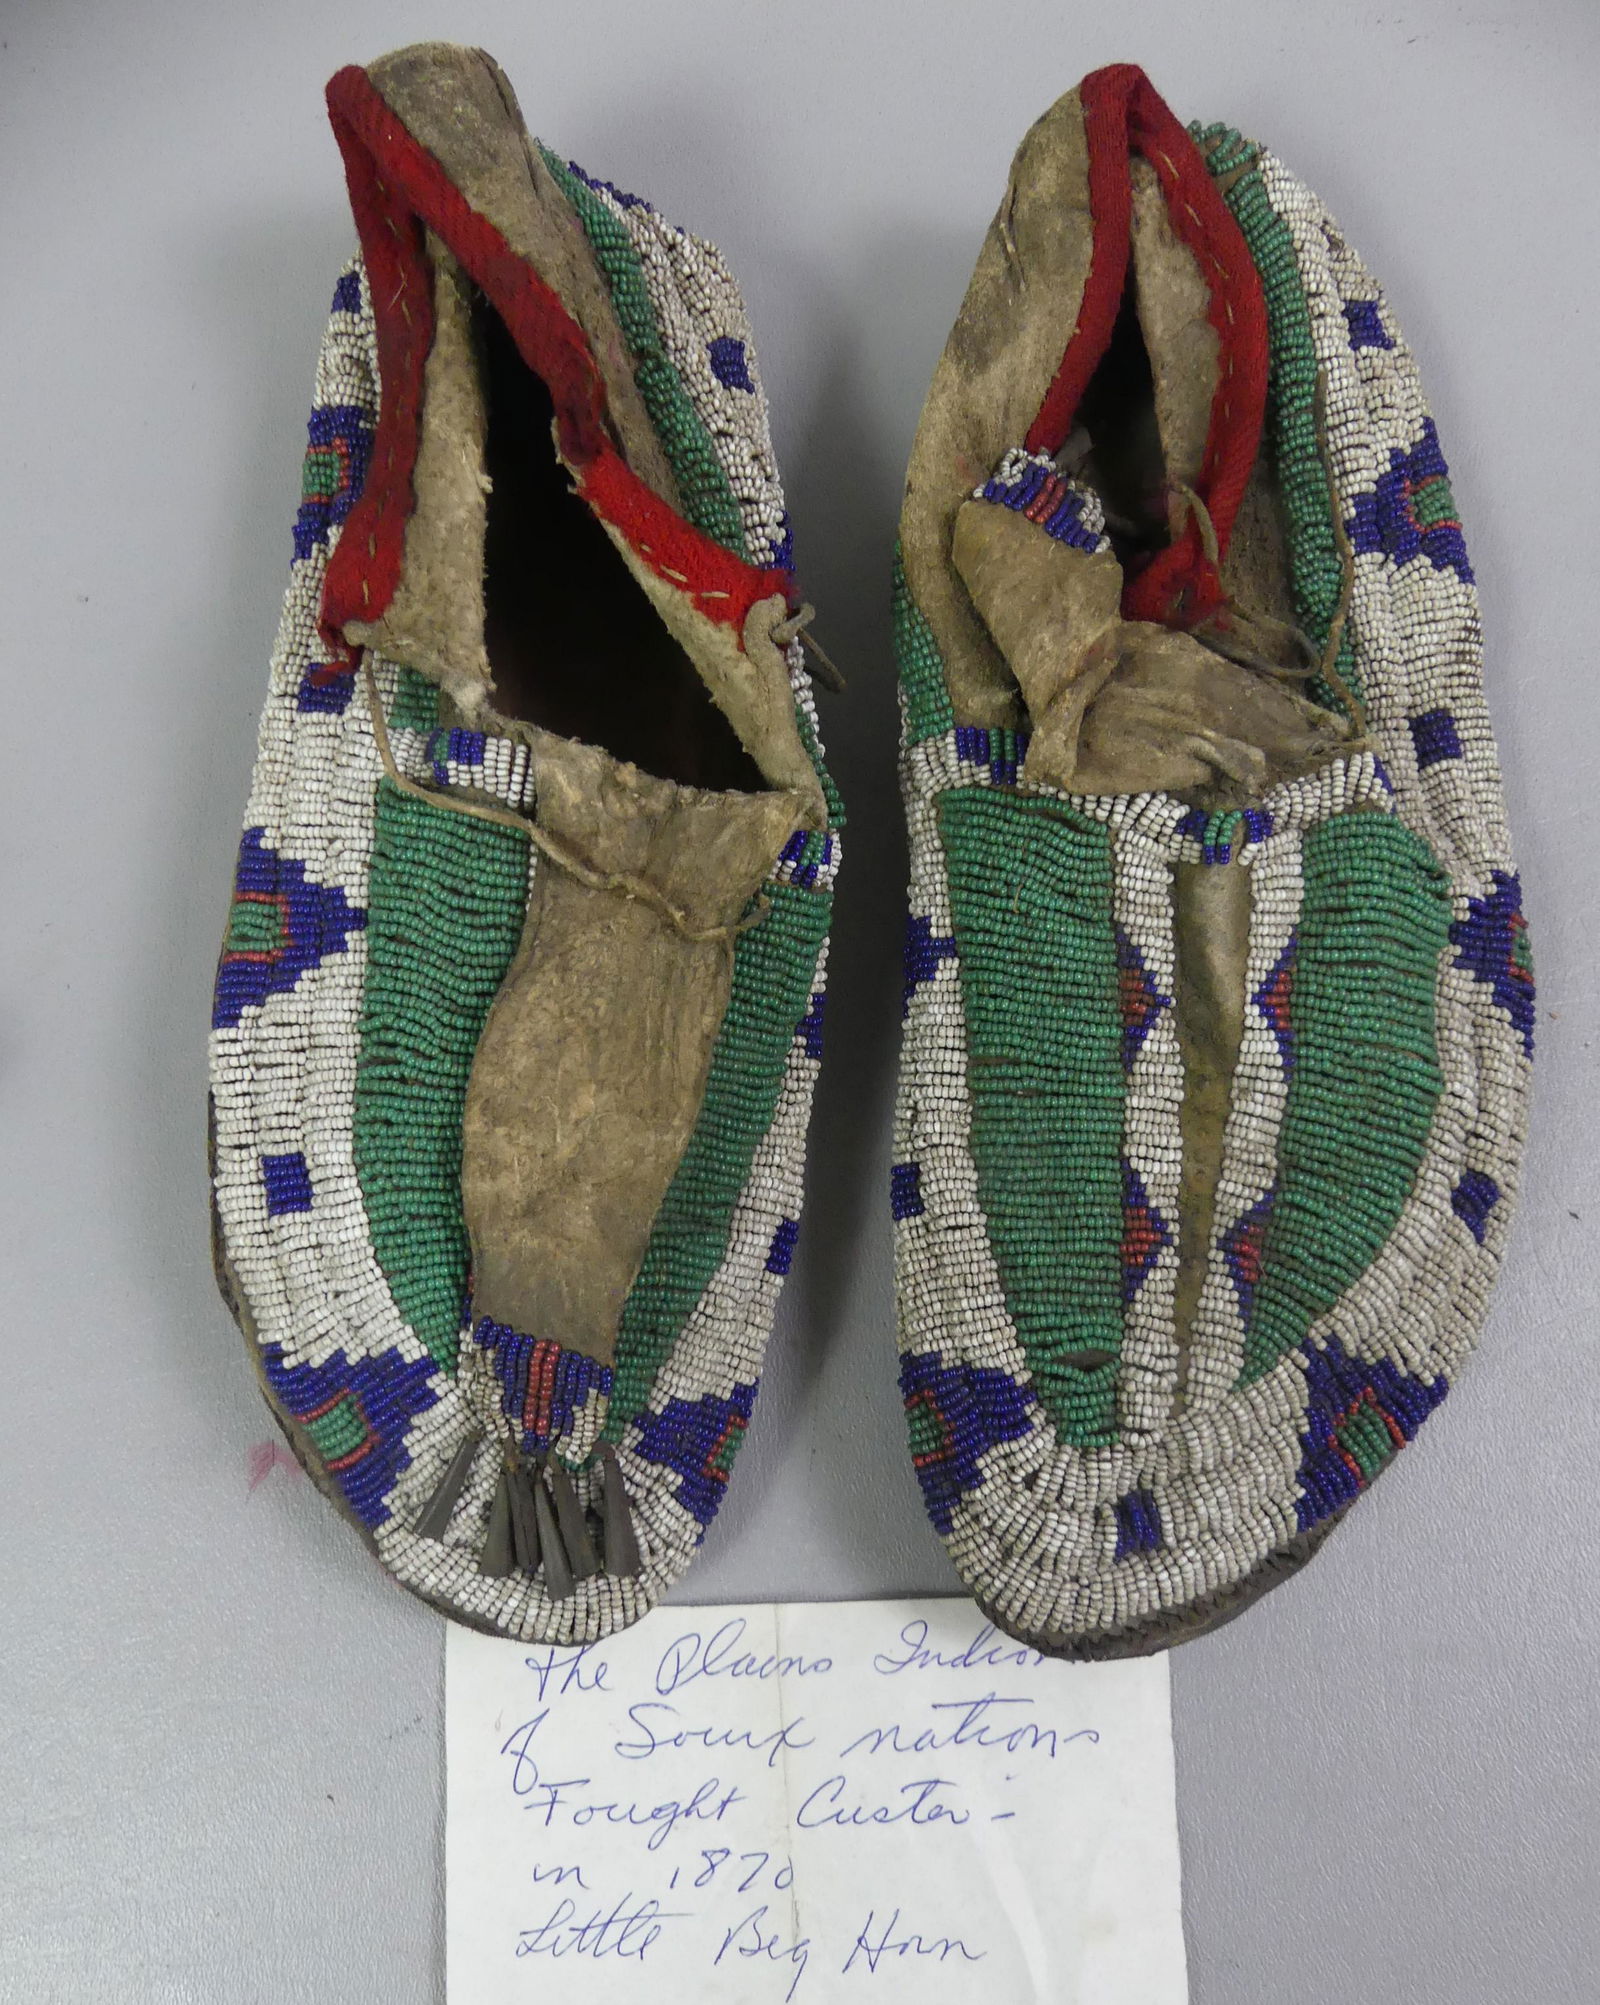 the Plains Indian
of Souix nations
Fought Custer -
in 1870
Little Big Horn